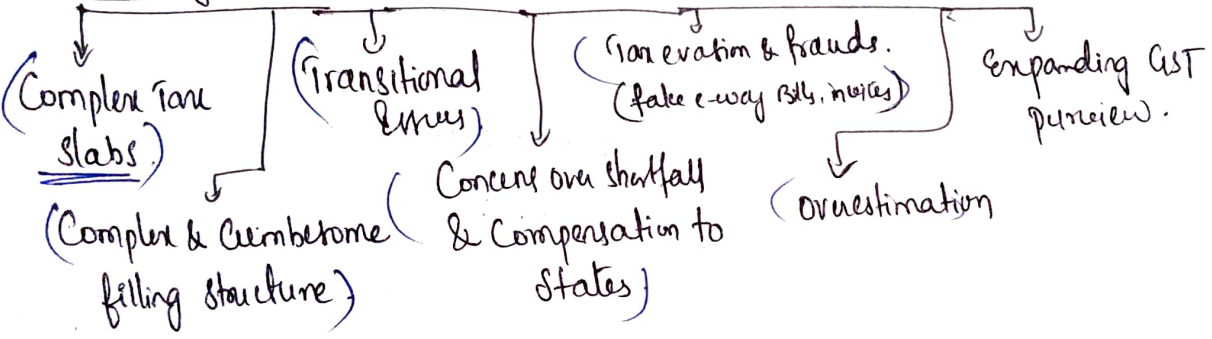 (Complex Tax
slabs.)
(Complex & Cumbersome
filling structure)
(Transitional
Errors)
(Concerns over shortfall
& Compensation to
States)
(Tax evation & frauds.
(fake e-way Bills, invoices))
(Overestimation
Expanding GST
purview.